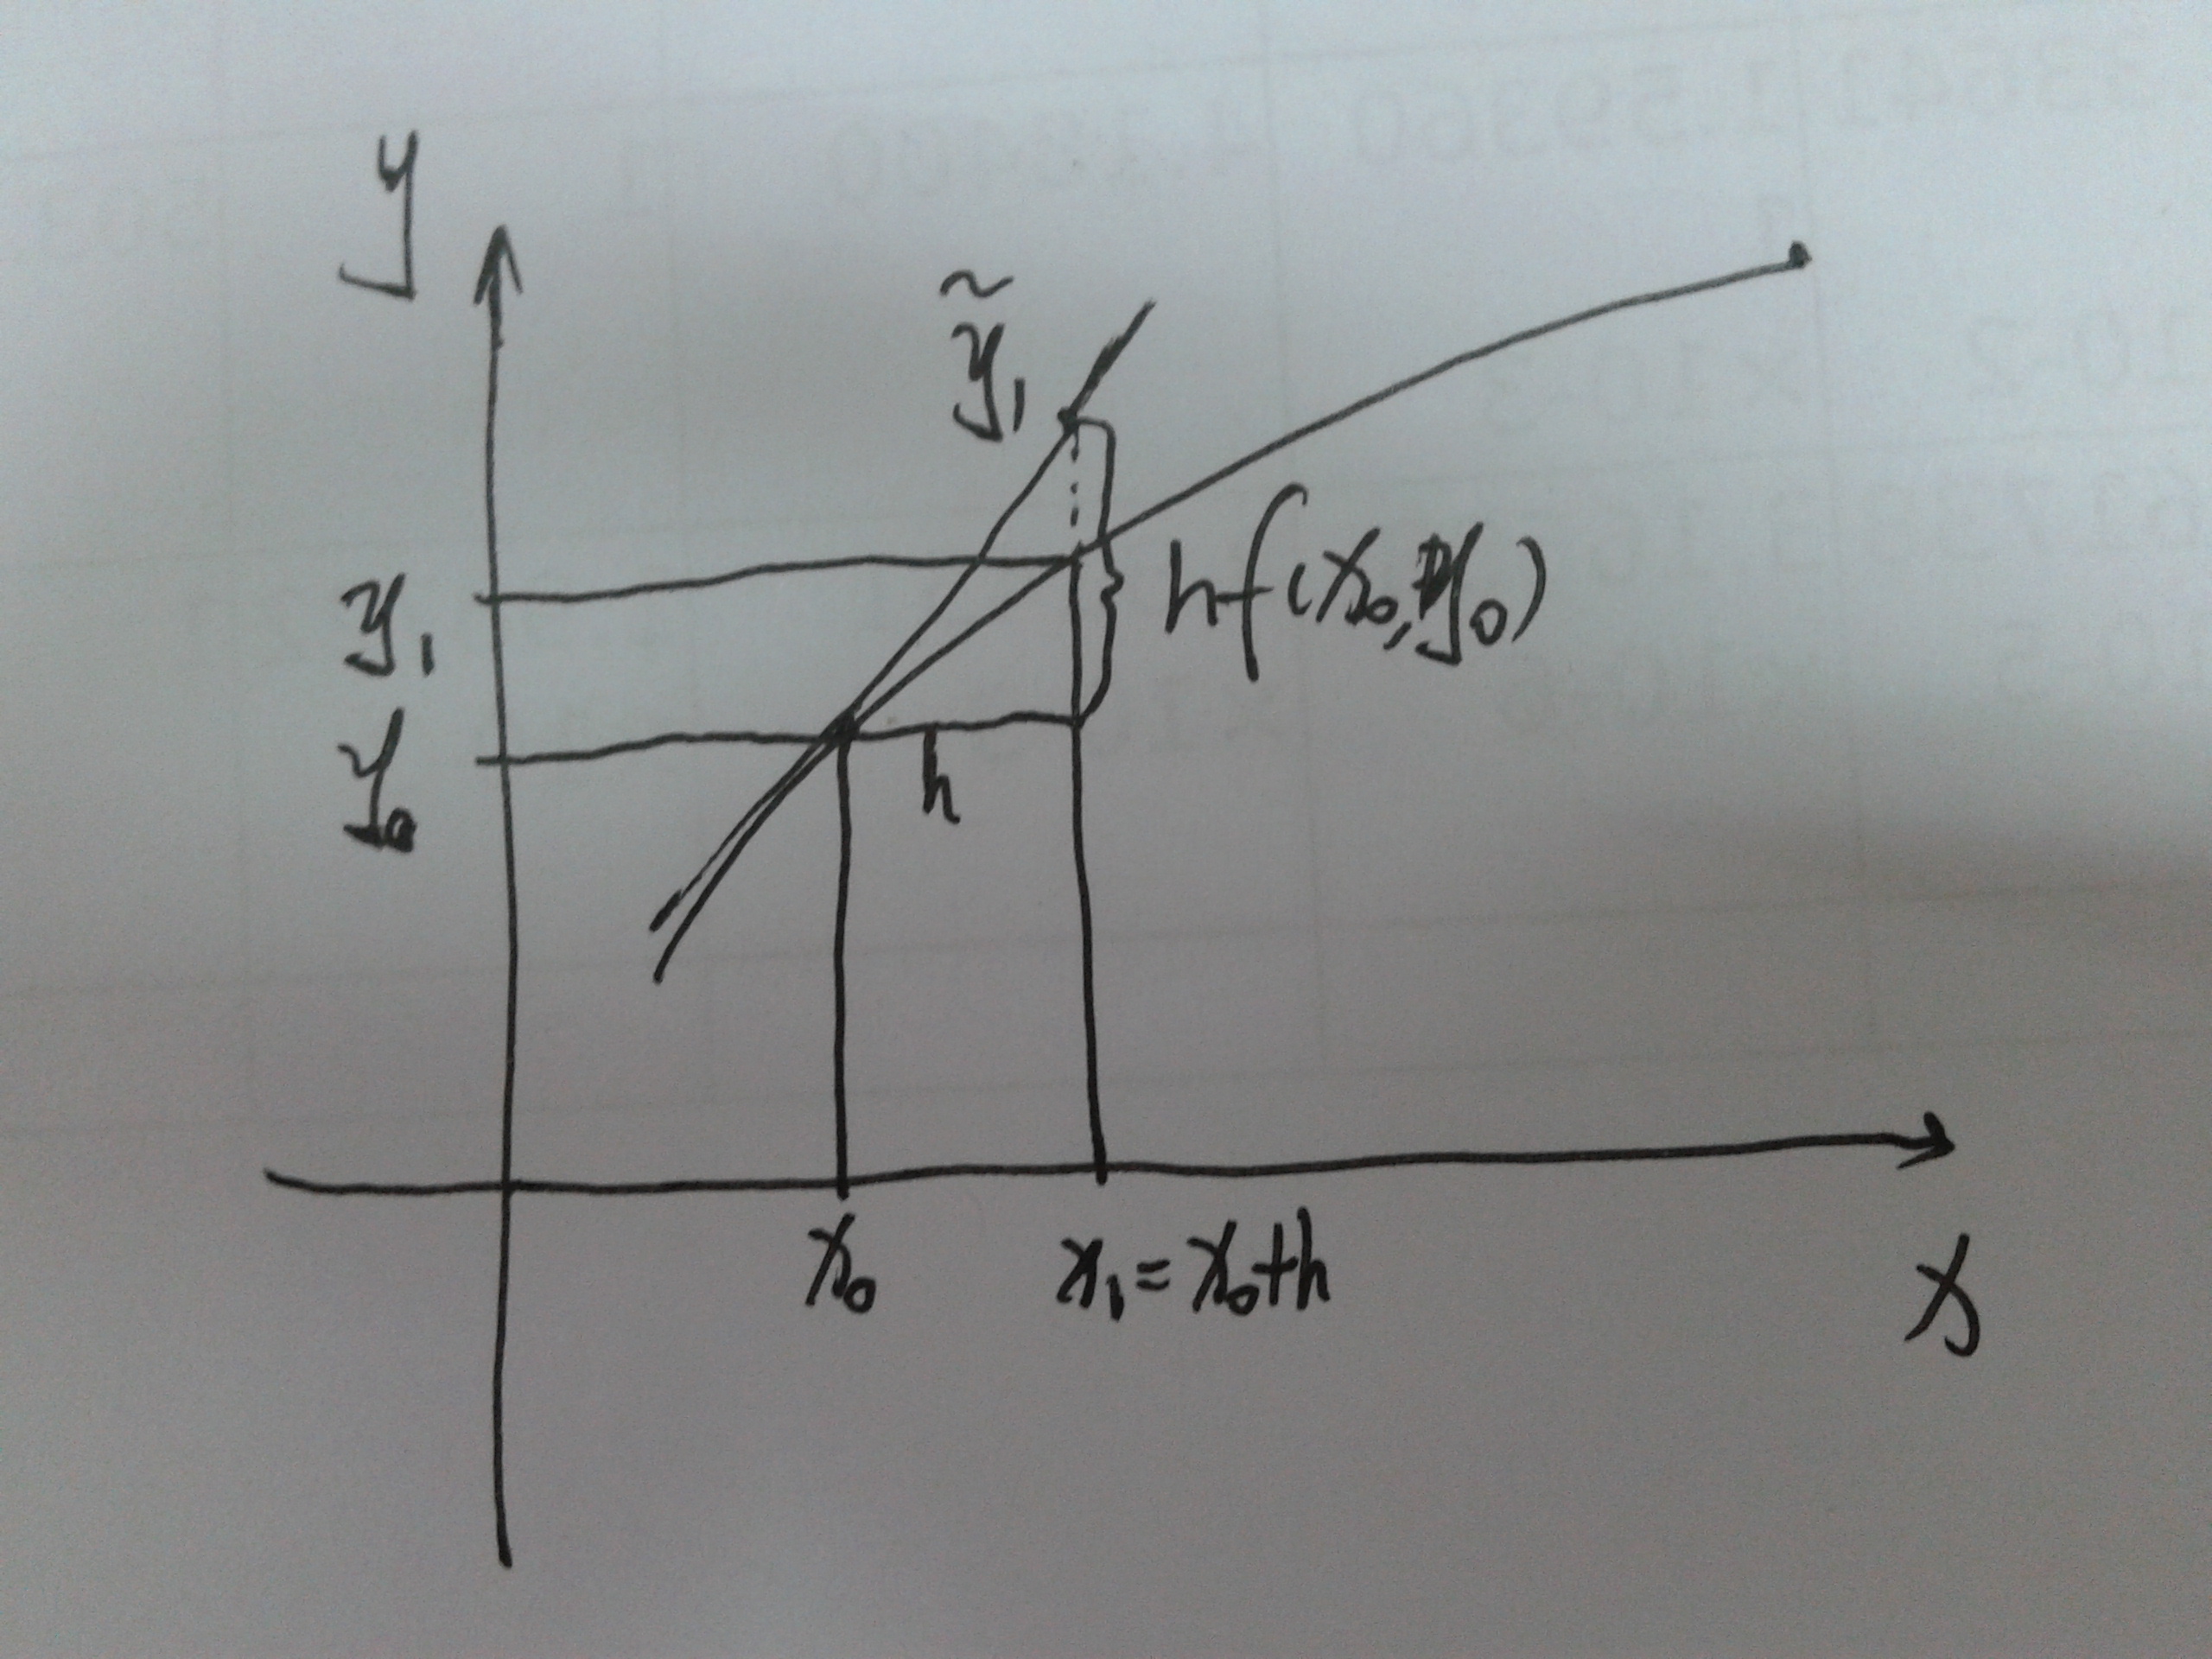 y
ỹ₁
y₁
hf(x₀,y₀)
y₀
h
x₀
x₁=x₀+h
x